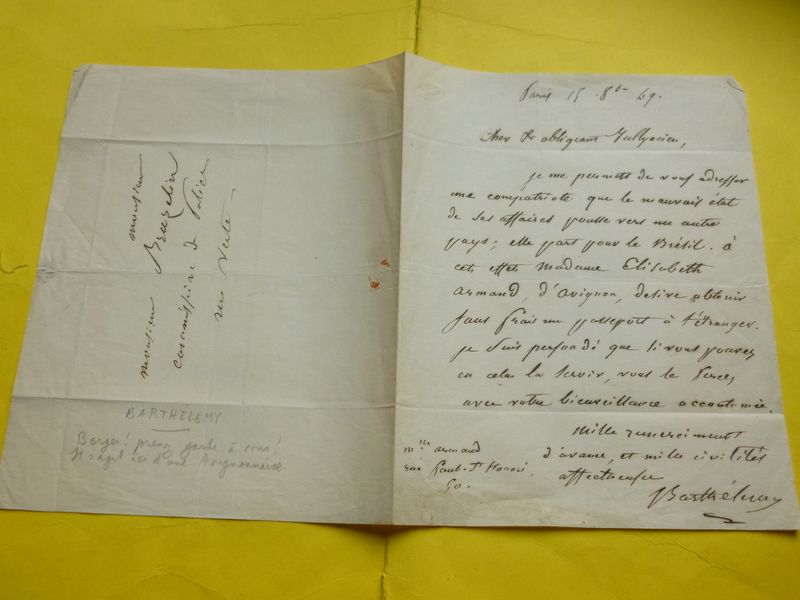 Paris 15 8bre 49.
Cher & obligeant
je me permets de vous adresser
une compatriote que le mauvais état
de ses affaires pousse vers un autre
pays; elle part pour le Brésil. à
cet effet Madame Elisabeth
armand, d'avignon, desire obtenir
sans frais un passeport à l'étranger.
je suis persuadé que si vous pouvez
en cela la servir, vous le ferez
avec votre bienveillance accoutumée.
mille remerciments
d'avance, et mille civilités
affectueuses
Barthélemy
Mme armand
rue faub. St honoré
50.
monsieur
monsieur Bruzelin
commissaire de Police
rue
BARTHELEMY
Berger! prenez garde à vous!
Il s'agit ici d'une Avignonnaise